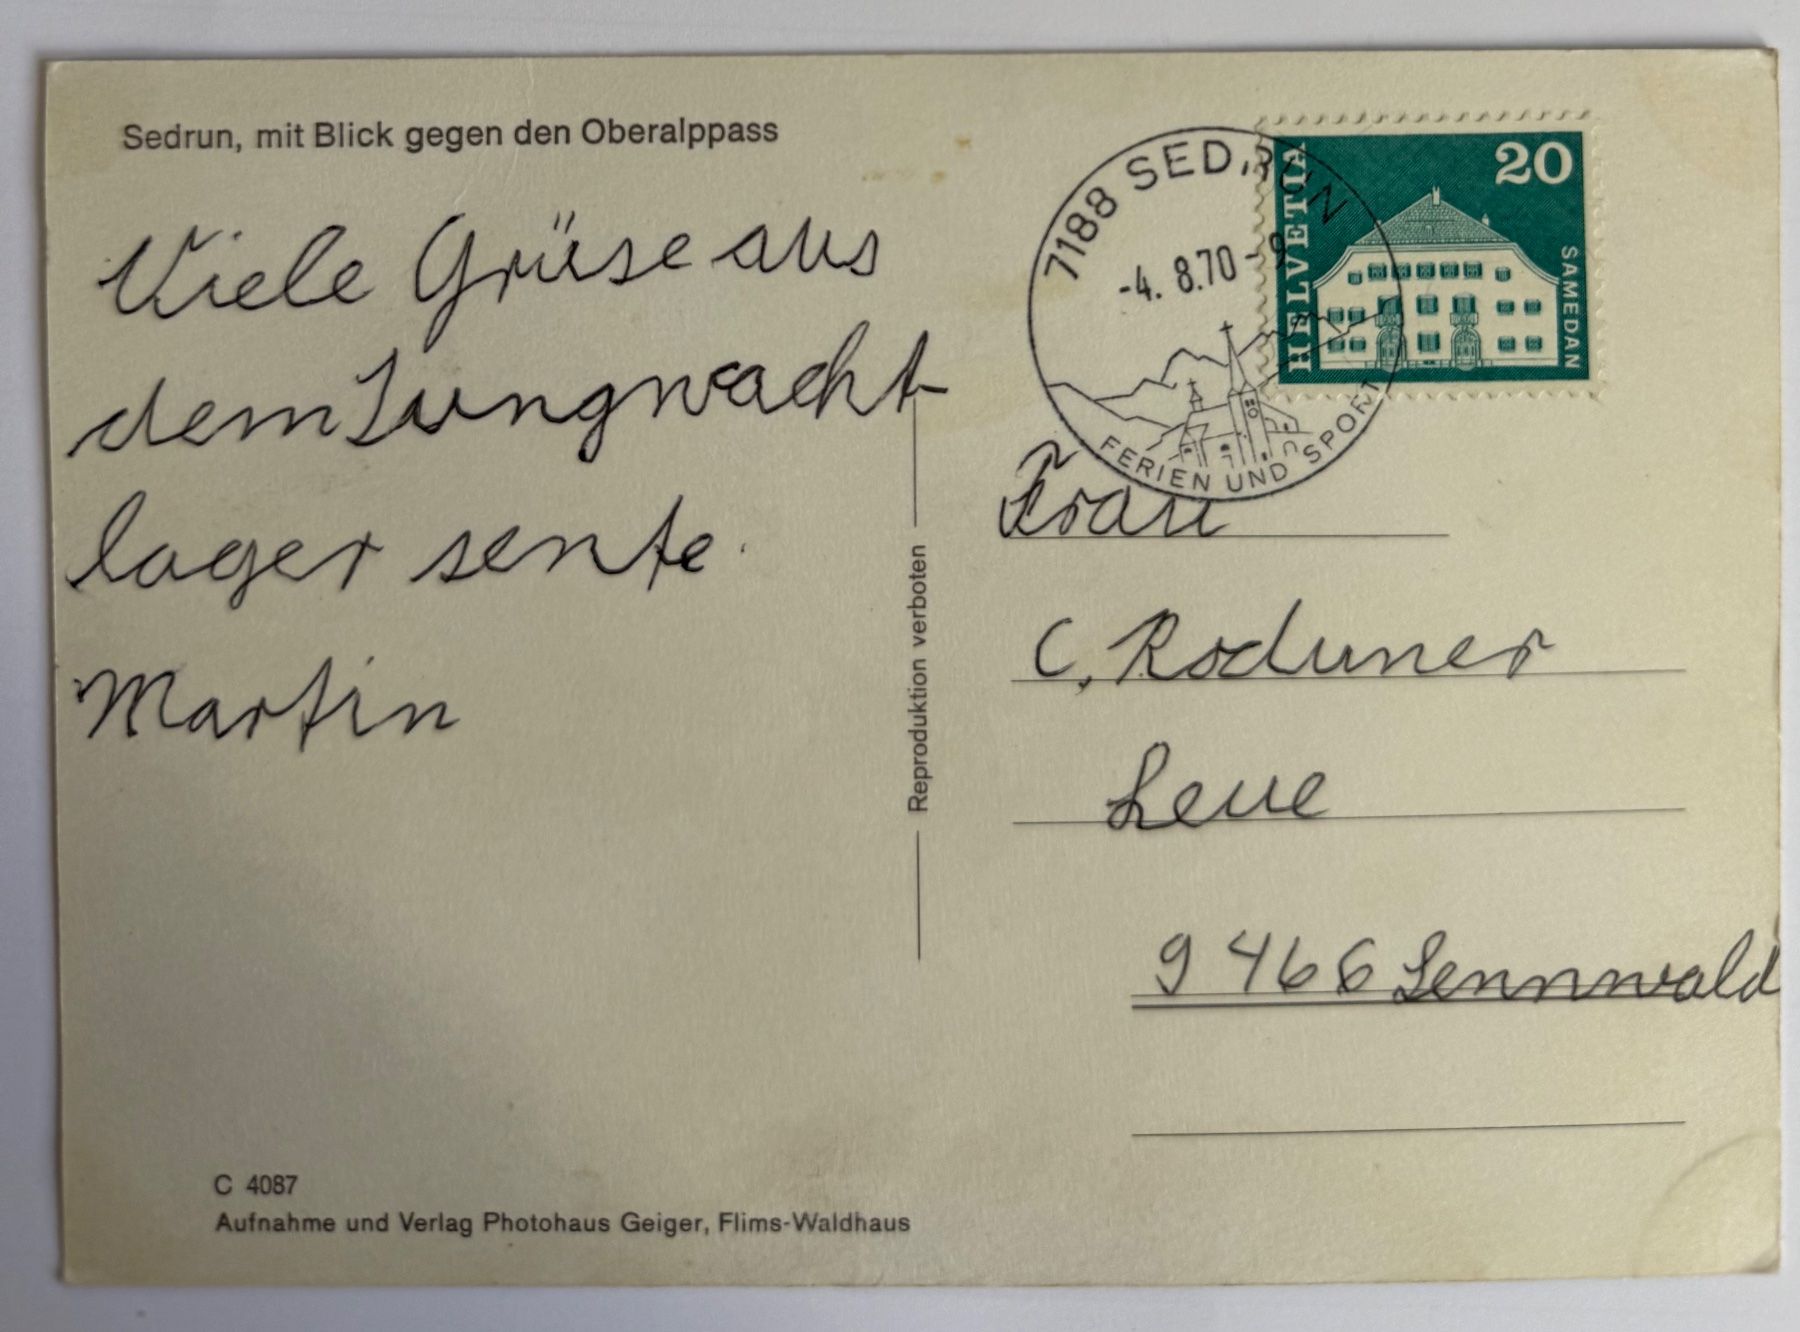 Sedrun, mit Blick gegen den Oberalppass
Viele Grüse aus
dem Jungwacht
lager sente
Martin
C 4087
Aufnahme und Verlag Photohaus Geiger, Flims-Waldhaus
Reproduktion verboten
7188 SEDRUN
-4. 8.70-9
FERIEN UND SPORT
HELVETIA
20
SAMEDAN
Frau
C. Roduner
Leue
9466 Sennwald